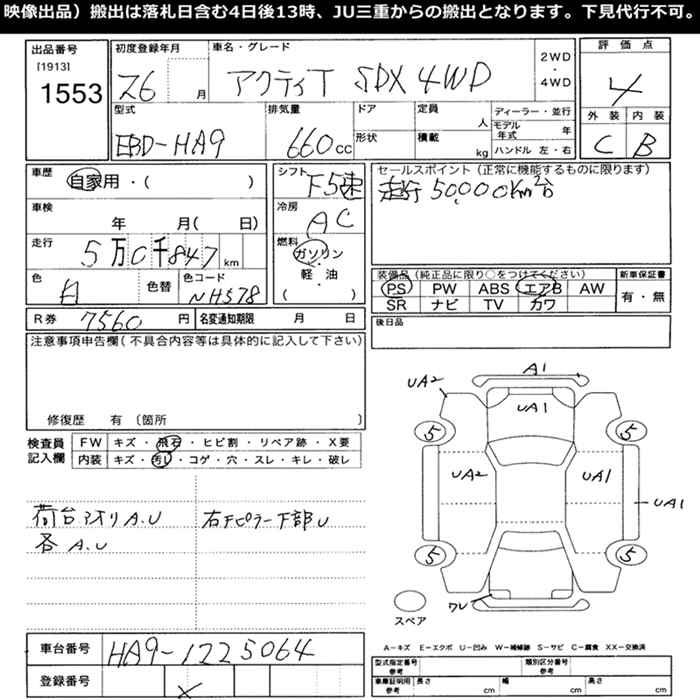 映像出品）搬出は落札日含む4日後13時、JU三重からの搬出となります。下見代行不可。
出品番号
[1913]
1553
初度登録年月
Z6 月
車名・グレード
アクティT SDX 4WD
2WD
・
4WD
評価点
4
型式
EBD-HA9
排気量
660cc
ドア
形状
定員 人
積載 kg
ディーラー・並行
モデル年式 年
ハンドル 左・右
外装 内装
C B
車歴
自家用・( )
シフト
F5速
セールスポイント（正常に機能するものに限ります）
走行50,000Km台
車検
年 月( 日)
冷房
AC
走行
5万0千847km
燃料
ガソリン
・
軽・油
( )
色
白
色替
色コード
NH578
装備品（純正品に限り○をつけてください）
PS PW ABS エアB AW
SR ナビ TV カワ
新車保証書
有・無
R券 7560円
名変通知期限 月 日
後日品
注意事項申告欄（不具合内容等は具体的に記入して下さい）
修復歴 有（箇所 ）
検査員
記入欄
FW キズ・飛石・ヒビ割・リペア跡・X要
内装 キズ・汚れ・コゲ・穴・スレ・キレ・破レ
荷台アオリA.U
各A.U
右Fピラー下部U
UA2
A1
UA1
5
5
UA2
UA1
UA1
5
5
スペア
A－キズ E－エクボ U－凹み W－補修跡 S－サビ C－腐食 XX－交換済
車台番号
HA9-1225064
登録番号
型式指定番号
参考
類別区分番号
参考
車庫証明用
参考
長さ cm
幅 cm
高さ cm